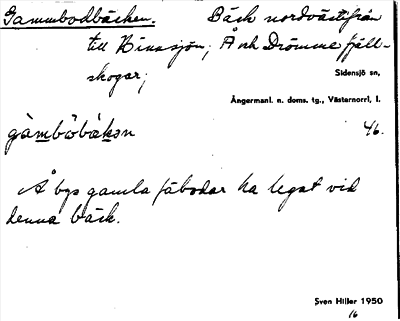 Gammbodbäcken. Bäck nordvästifrån
till Binasjön; Å och Drömme fjäll-
skogar;
Sidensjö sn,
Ångermanl. n. doms. tg., Västernorrl. l.
gàmbòbäkɜn 46.
Å bys gamla fäbodar ha legat vid
denna bäck.
Sven Hiller 1950
16